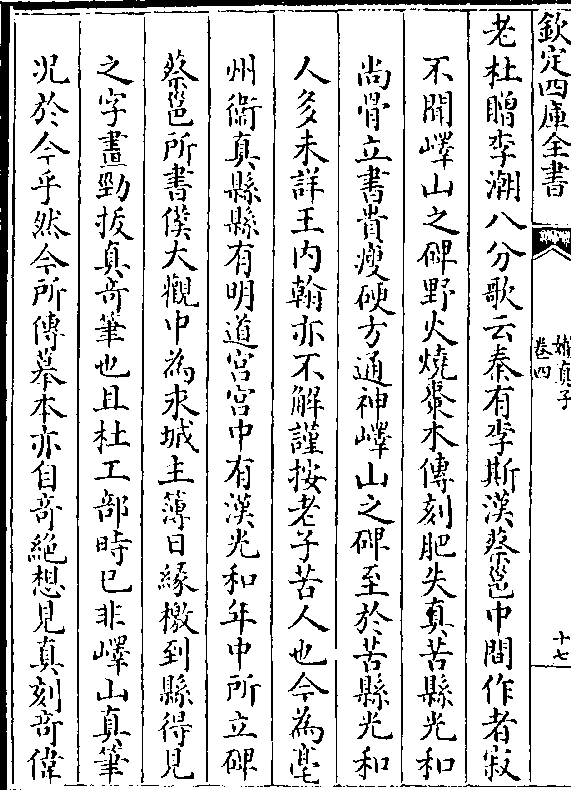 欽定四庫全書
嬾真子
卷四
十七
老杜贈李潮八分歌云秦有李斯漢蔡邕中間作者寂
不聞嶧山之碑野火燒棗木傳刻肥失真苦縣光和
尚骨立書貴瘦硬方通神嶧山之碑至於苦縣光和
人多未詳王内翰亦不解謹按老子苦人也今為亳
州衞真縣縣有明道宫宫中有漢光和年中所立碑
蔡邕所書僕大觀中為永城主薄日縁檄到縣得見
之字畫勁抜真竒筆也且杜工部時已非嶧山真筆
况於今乎然今所傳摹本亦自竒絶想見真刻竒偉